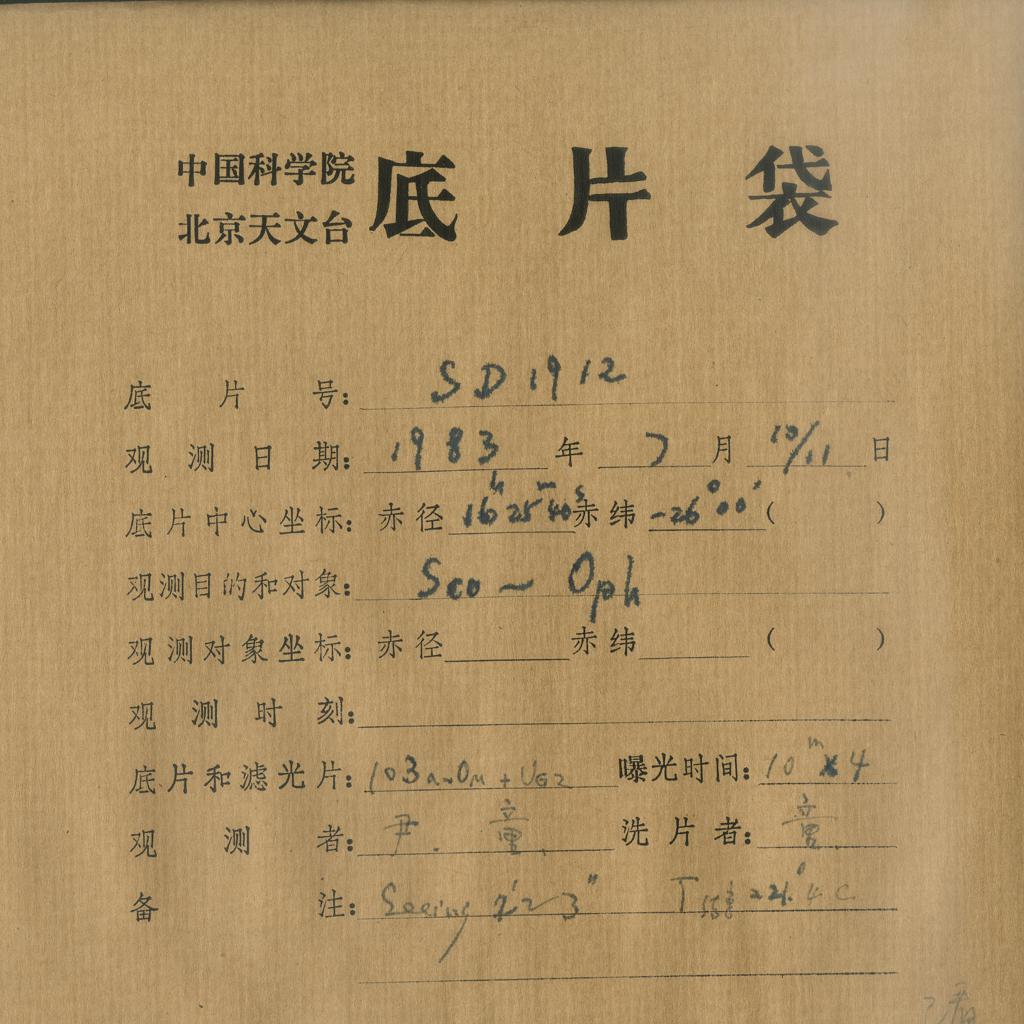 中国科学院
北京天文台
底片袋
底片号: SD1912
观测日期: 1983 年 7 月 10/11 日
底片中心坐标: 赤径 16h25m40s 赤纬 -26°00′ ( )
观测目的和对象: Sco ~ Oph
观测对象坐标: 赤径 赤纬 ( )
观测时刻:
底片和滤光片: 103a-O + UG2 曝光时间: 10m×4
观测者: 尹. 童. 洗片者: 童.
备注: Seeing 2~3″